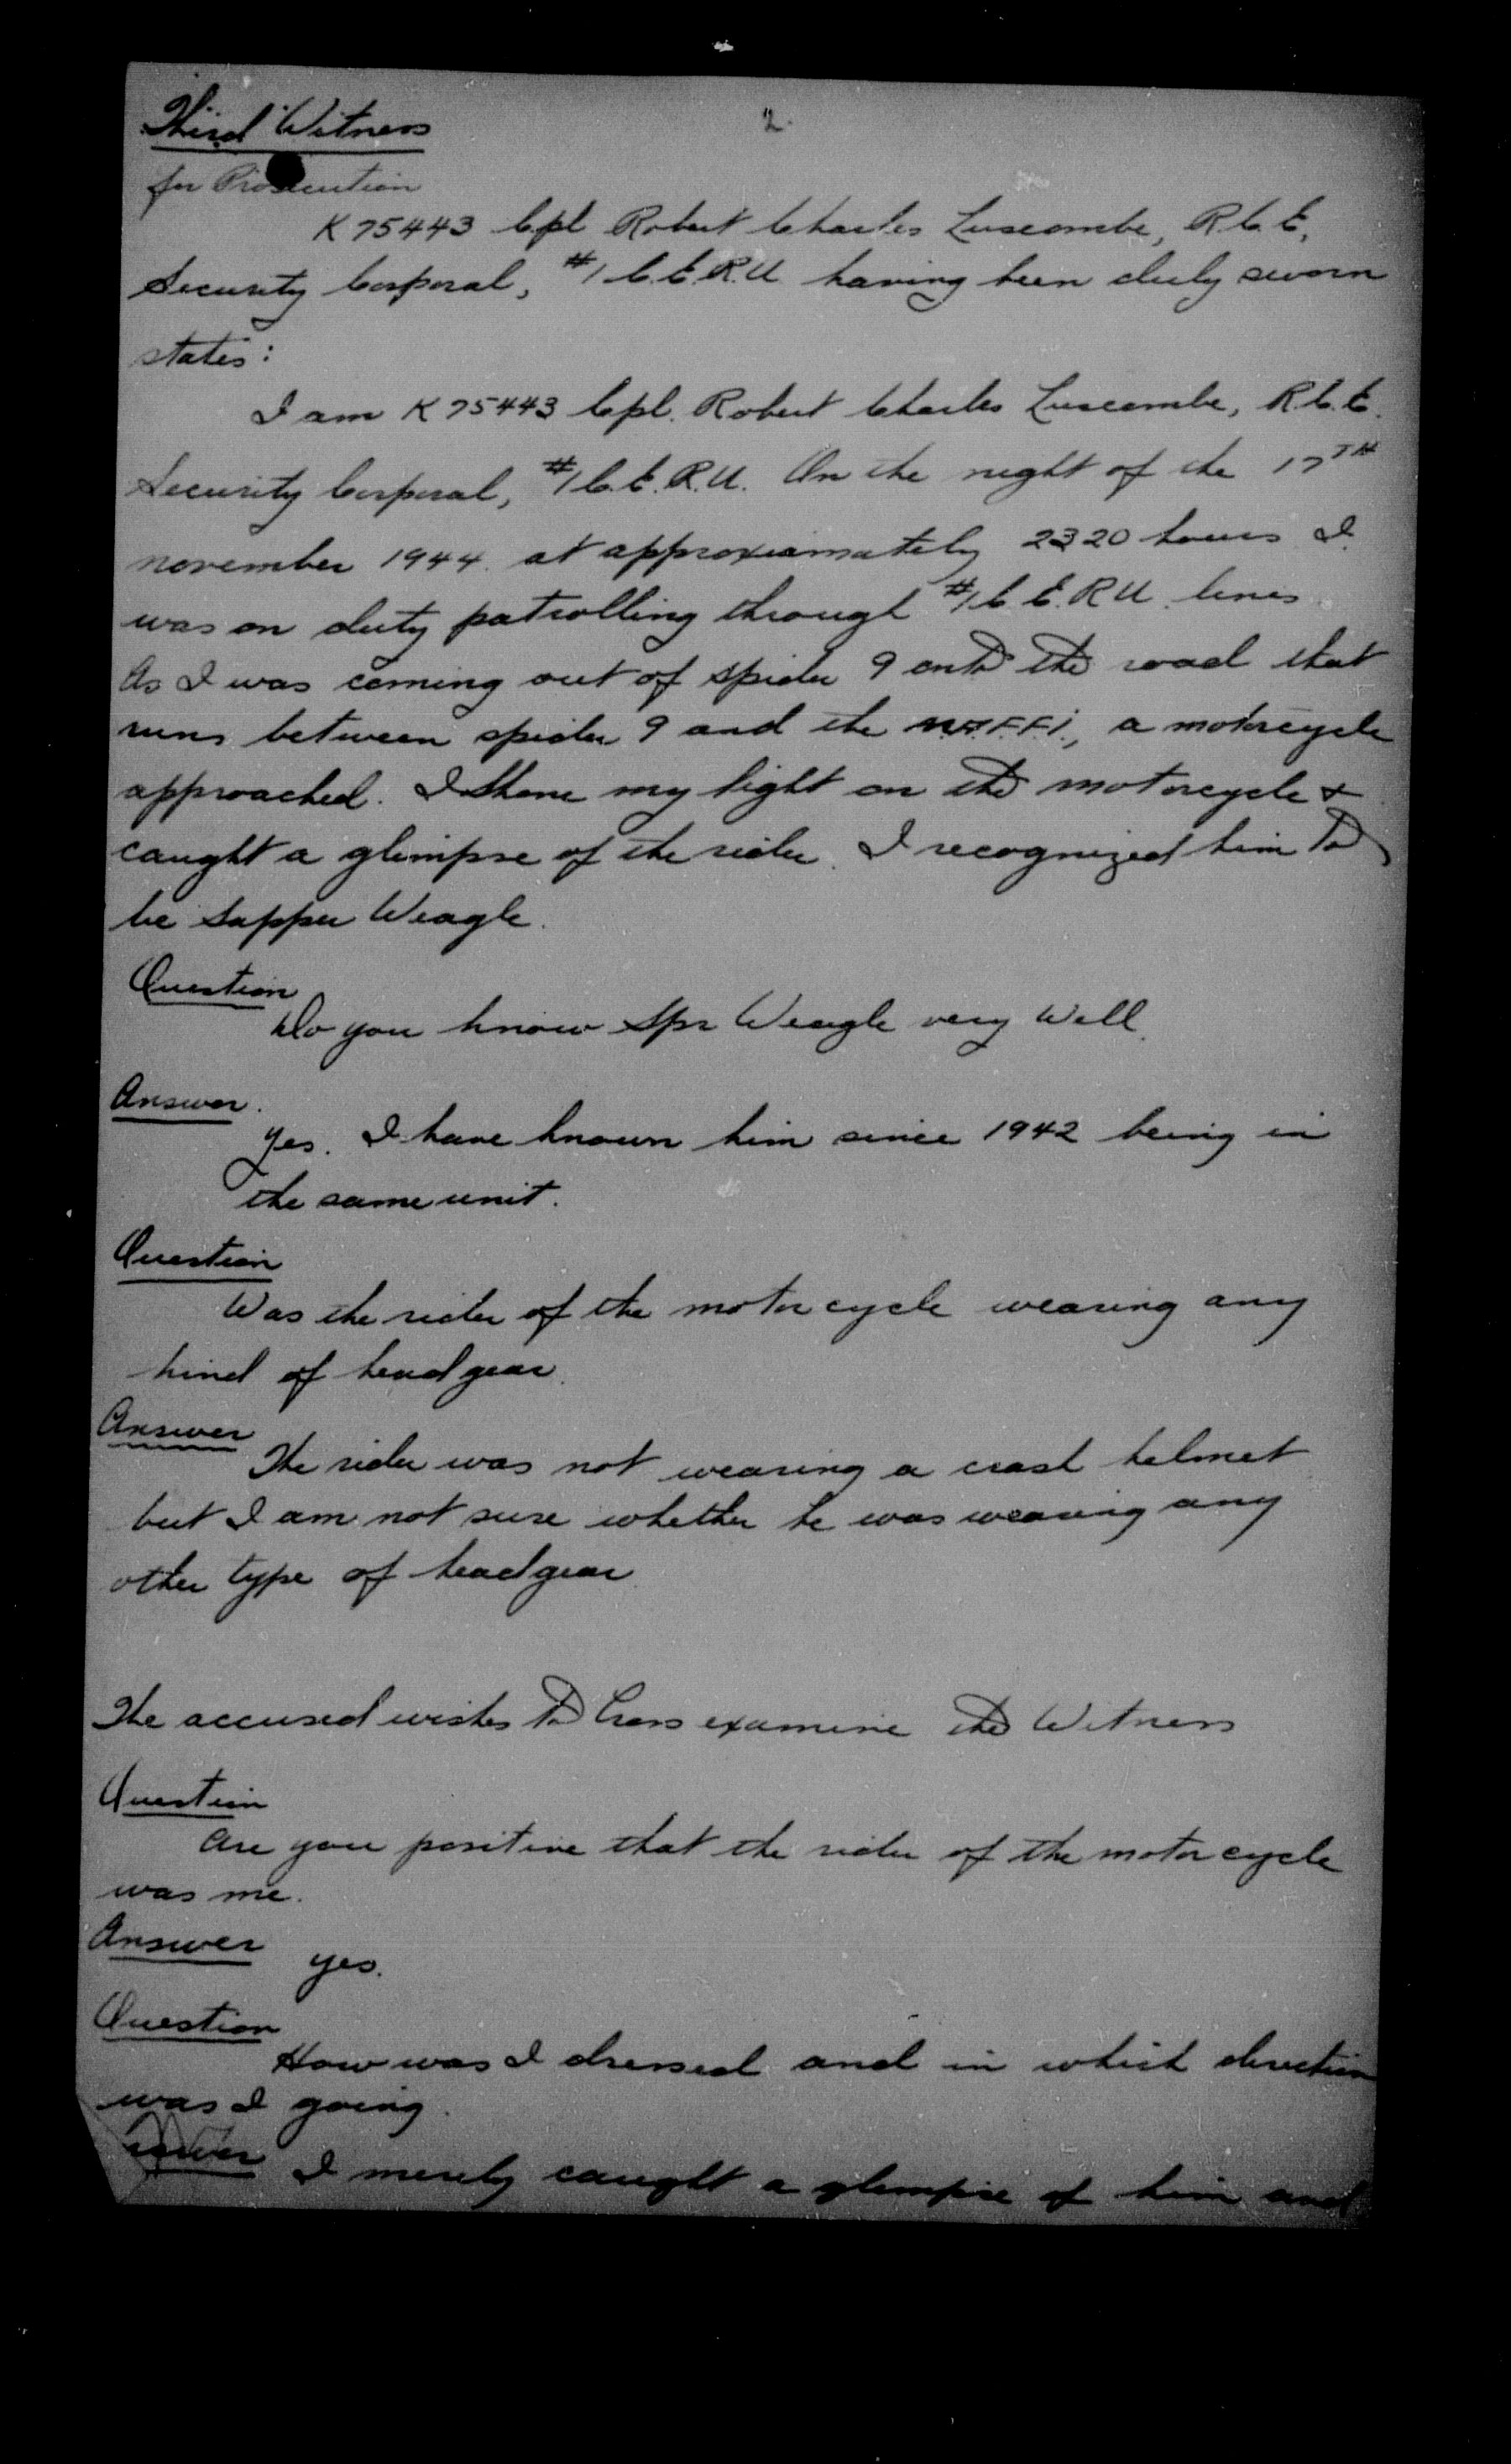 2.
Third Witness
for Prosecution
K 75443 Cpl Robert Charles Luscombe, R.C.E,
Security Corporal, #1 C.E.R.U having been duly sworn
states:
I am K 75443 Cpl. Robert Charles Luscombe, R.C.E.
Security Corporal, #1 C.E.R.U. On the night of the 17TH
november 1944 at approxiamately 2320 hours I
was on duty patrolling through #1 C.E.R.U. lines
As I was coming out of spider 9 onto the road that
runs between spider 9 and the N.A.F.F.I., a motorcycle
approached. I shone my light on the motorcycle +
caught a glimpse of the rider. I recognized him to
be Sapper Weagle.
Question
Do you know Spr Weagle very Well.
Answer.
Yes. I have known him since 1942 being in
the same unit.
Question
Was the rider of the motor cycle wearing any
kind of headgear.
Answer
The rider was not wearing a crash helmet
but I am not sure whether he was wearing any
other type of headgear
The accused wishes to Cross examine the Witness
Question
Are you positive that the rider of the motor cycle
was me.
Answer yes.
Question
How was I dressed and in which direction
was I going.
Answer I merely caught a glimpse of him and